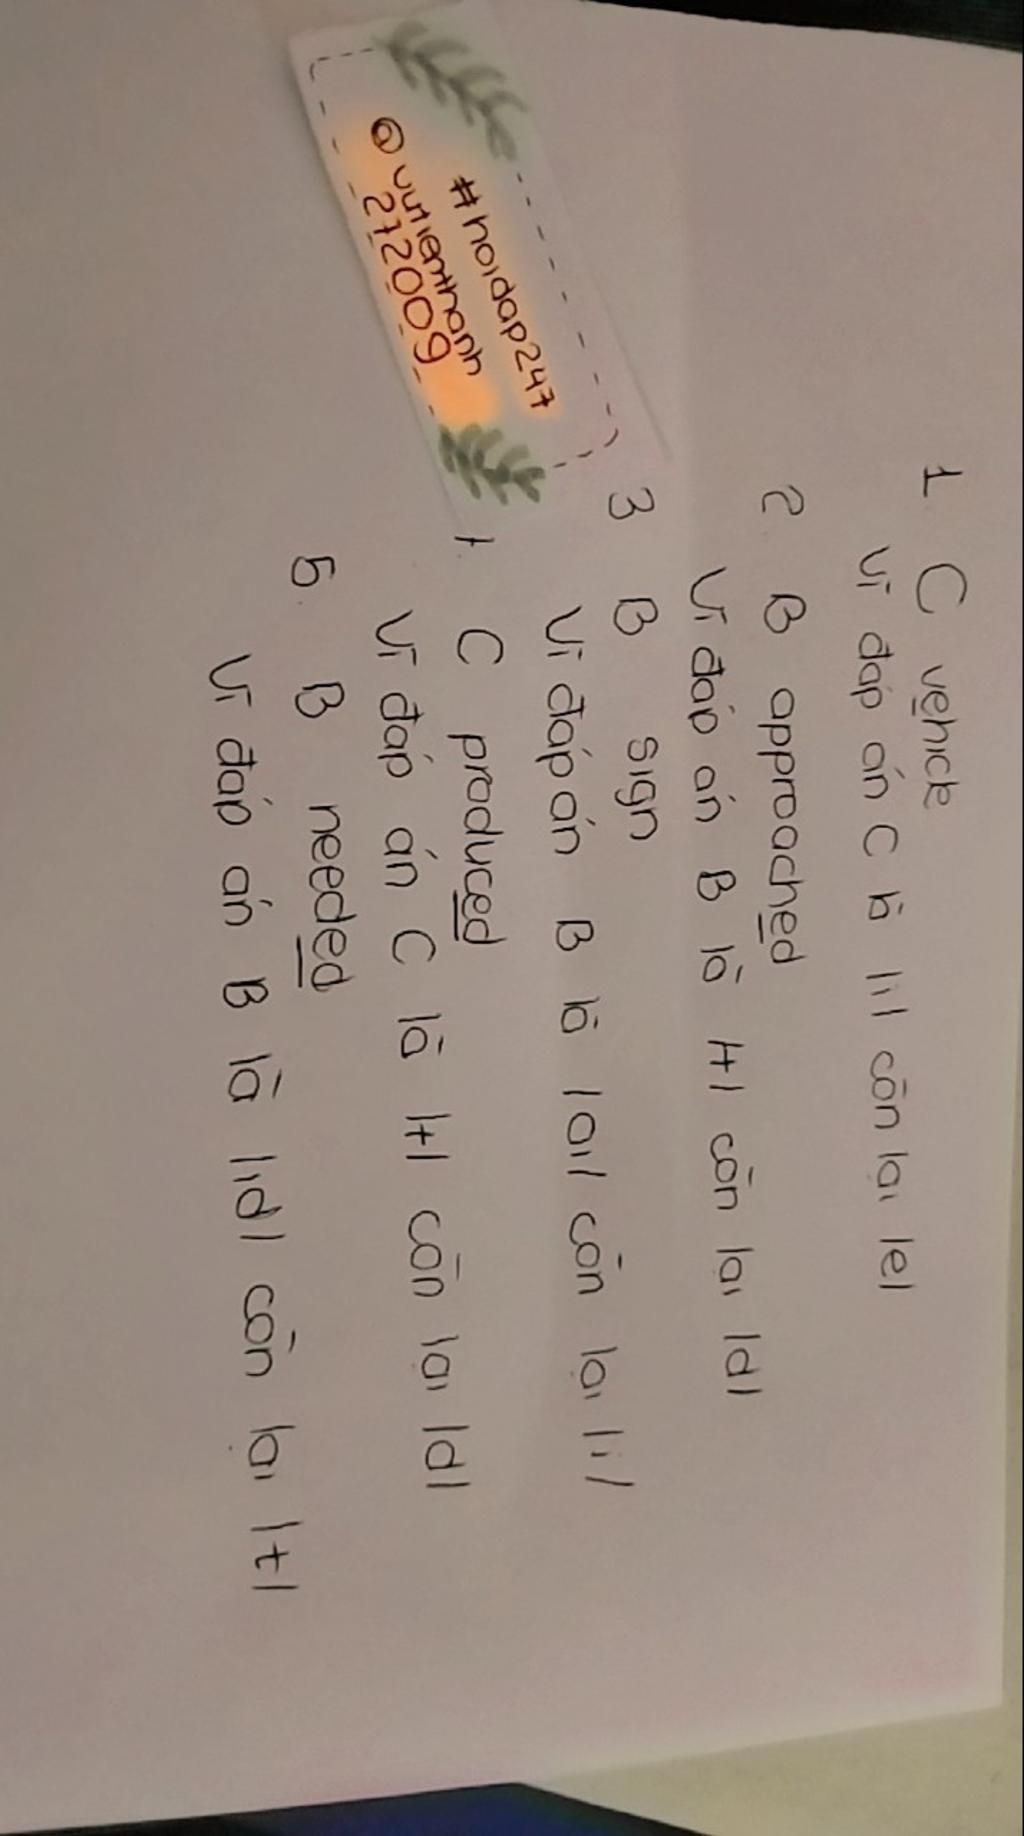 #hoidap247
@vutienthanh
272009
1. C vehicle
Vì đáp án C là /i:/ còn lại /e/
2. B approached
Vì đáp án B là /t/ còn lại /d/
3 B sign
Vì đáp án B là /ai/ còn lại /i/
C produced
Vì đáp án C là /t/ còn lại /d/
5. B needed
Vì đáp án B là /id/ còn lại /t/